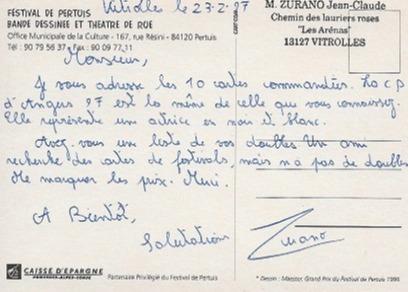 Vitrolles le 23-2-97
FESTIVAL DE PERTUIS
BANDE DESSINEE ET THEATRE DE RUE
Office Municipale de la Culture - 167, rue Résini - 84120 Pertuis
Tél : 90 79 56 37 - Fax : 90 09 77 11
M. ZURANO Jean-Claude
Chemin des lauriers roses
"Les Arénas"
13127 VITROLLES
Monsieur,
Je vous adresse les 10 cartes commandées. La CP
d'Angers 97 est la même de celle que vous connaissez.
Elle représente une actrice en noir et blanc.
Avez-vous un liste de vos doubles Un ami
recherche des cartes de festivals, mais n'a pas de doubles
Me marquer les prix. Merci.
A Bientôt,
Salutations
Zurano
CAISSE D'EPARGNE
Partenaire Privilégié du Festival de Pertuis
* Dessin : Maester, Grand Prix du Festival de Pertuis 1996